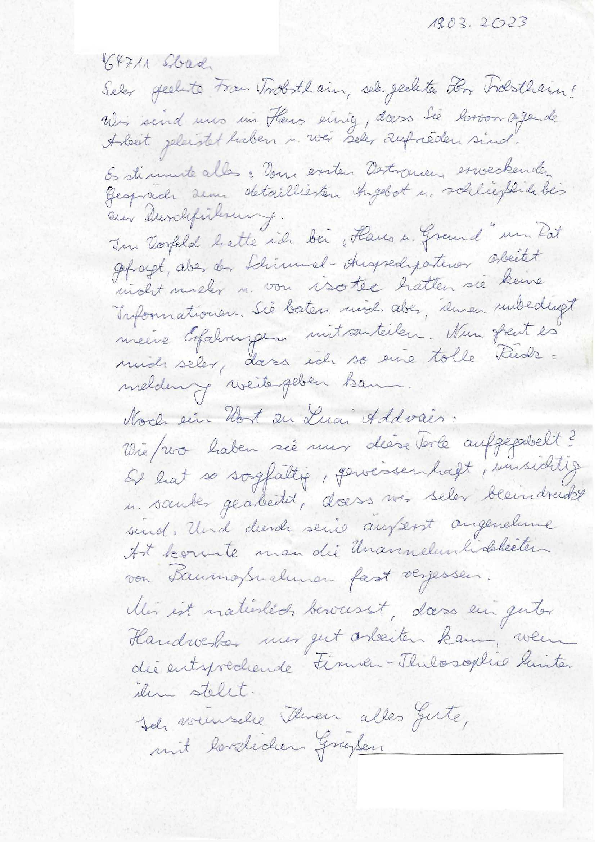 19.03.2023
64711 Erbach
Sehr geehrte Frau Trobsthain, sehr geehrter Herr Trobsthain!
Wir sind uns im Haus einig, dass Sie hervorragende
Arbeit geleistet haben u. wir sehr zufrieden sind.
Es stimmte alles: Vom ersten Vertrauen erweckenden
Gespräch zum detaillierten Angebot u. schließlich bis
zur Durchführung.
Im Vorfeld hatte ich bei „Haus u. Grund" um Rat
gefragt, aber der Schimmel-Ansprechpartner arbeitet
nicht mehr u. von isotec hatten sie keine
Informationen. Sie baten mich aber, ihnen unbedingt
meine Erfahrungen mitzuteilen. Nun freut es
mich sehr, dass ich so eine tolle Rück=
meldung weitergeben kann.
Noch ein Wort zu
Wie/wo haben sie nur diese Perle aufgegabelt?
Er hat so sorgfältig, gewissenhaft, umsichtig
u. sauber gearbeitet, dass wir sehr beeindruckt
sind. Und durch seine äußerst angenehme
Art konnte man die Unannehmlichkeiten
von Baumaßnahmen fast vergessen.
Mir ist natürlich bewusst, dass ein guter
Handwerker nur gut arbeiten kann, wenn
die entsprechende Firmen-Philosophie hinter
ihm steht.
Ich wünsche Ihnen alles Gute,
mit herzlichen Grüßen